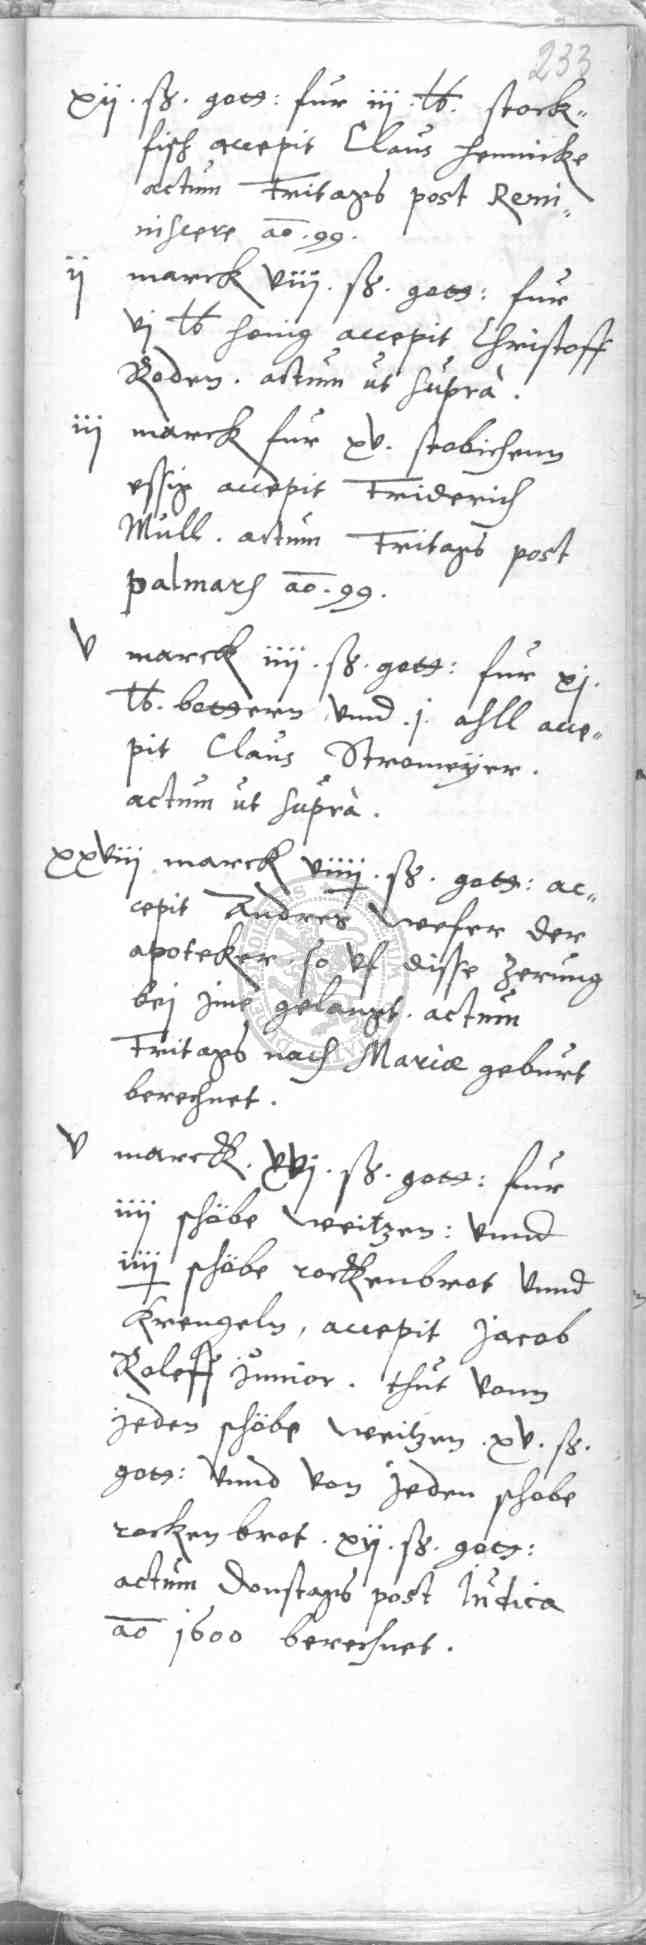 233
xij. ß. gott: fur iij. lb. stock„
fisch accepit Claus Hennicke
actum Fritags post Remi„
niscere ao. 99.
ij marck viij. ß. gott: fur
vj lb honig accepit Christoff
Roden. actum ut supra.
iij marck fur xv. stobichenn
essig accepit Friderich
Mull. actum Fritags post
palmarum ao. 99.
v marck iiij. ß. gott: fur xj.
lb. bottern vnnd .j. ahll acce„
pit Claus Stromeÿer.
actum ut supra.
xxviij marck viiij. ß. gott: ac„
cepit Andres Weser der
apoteker so vf disse Zerung
bej jme gelangt. actum
Fritags nach Mariæ geburt
berechnet.
v marck. xvj. ß. gott: fur
iiij schöbe weitzen: vnnd
iiij schöbe rockenbrot vnnd
Krengeln, accepit Jacob
Roleff junior. thut vonn
jeden schöbe weitzen .xv. ß.
gott: vnnd von jeden schobe
rocken brot. xij. ß. gott:
actum donstags post Iudica
ao 1600 berechnet.